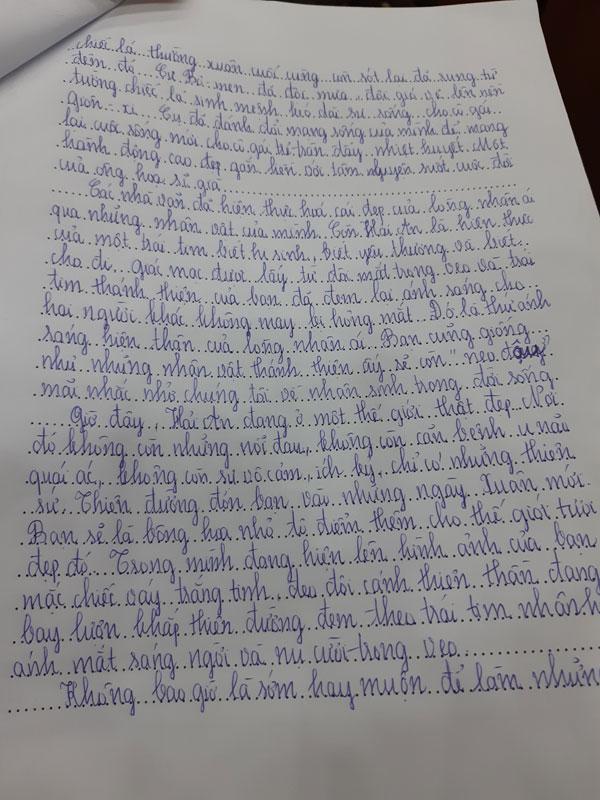 chiếc lá thường xuân cuối cùng còn sót lại đã rụng từ
đêm đó. Cụ Bơ-men đã đội mưa, đội gió vẽ lên nên
tường chiếc lá sinh mệnh kéo dài sự sống cho cô gái
Giôn-xi. Cụ đã đánh đổi mạng sống của mình để mang
lại cuộc sống mới cho cô gái trẻ tràn đầy nhiệt huyết. Một
hành động cao đẹp gắn liền với tâm nguyện suốt cuộc đời
của ông họa sĩ già
Các nhà văn đã hiện thực hoá cái đẹp của lòng nhân ái
qua những nhân vật của mình. Còn Hải An là hiện thực
của một trái tim biết hy sinh, biết yêu thương và biết
cho đi. giác mạc được lấy từ đôi mắt trong veo và trái
tim thánh thiện của bạn đã đem lại ánh sáng cho
hai người khác không may bị hỏng mắt. Đó là thứ ánh
sáng hiện thân của lòng nhân ái. Bạn cũng giống
như những nhân vật thánh thiện ấy sẽ còn neo đậu
mãi nhắc nhở chúng tôi về nhân sinh trong đời sống.
Giờ đây, Hải An đang ở một thế giới thật đẹp. Nơi
đó không còn những nỗi đau, không còn căn bệnh u não
quái ác, không còn sự vô cảm, ích kỷ, chỉ có những thiên
sứ. Thiên đường đón bạn vào những ngày Xuân mới.
Bạn sẽ là bông hoa nhỏ tô điểm thêm cho thế giới tươi
đẹp đó. Trong mình đang hiện lên hình ảnh của bạn
mặc chiếc váy trắng tinh, đeo đôi cánh thiên thần đang
bay lượn khắp thiên đường đem theo trái tim nhân h
ánh mắt sáng ngời và nụ cười trong veo.
Không bao giờ là sớm hay muộn để làm những